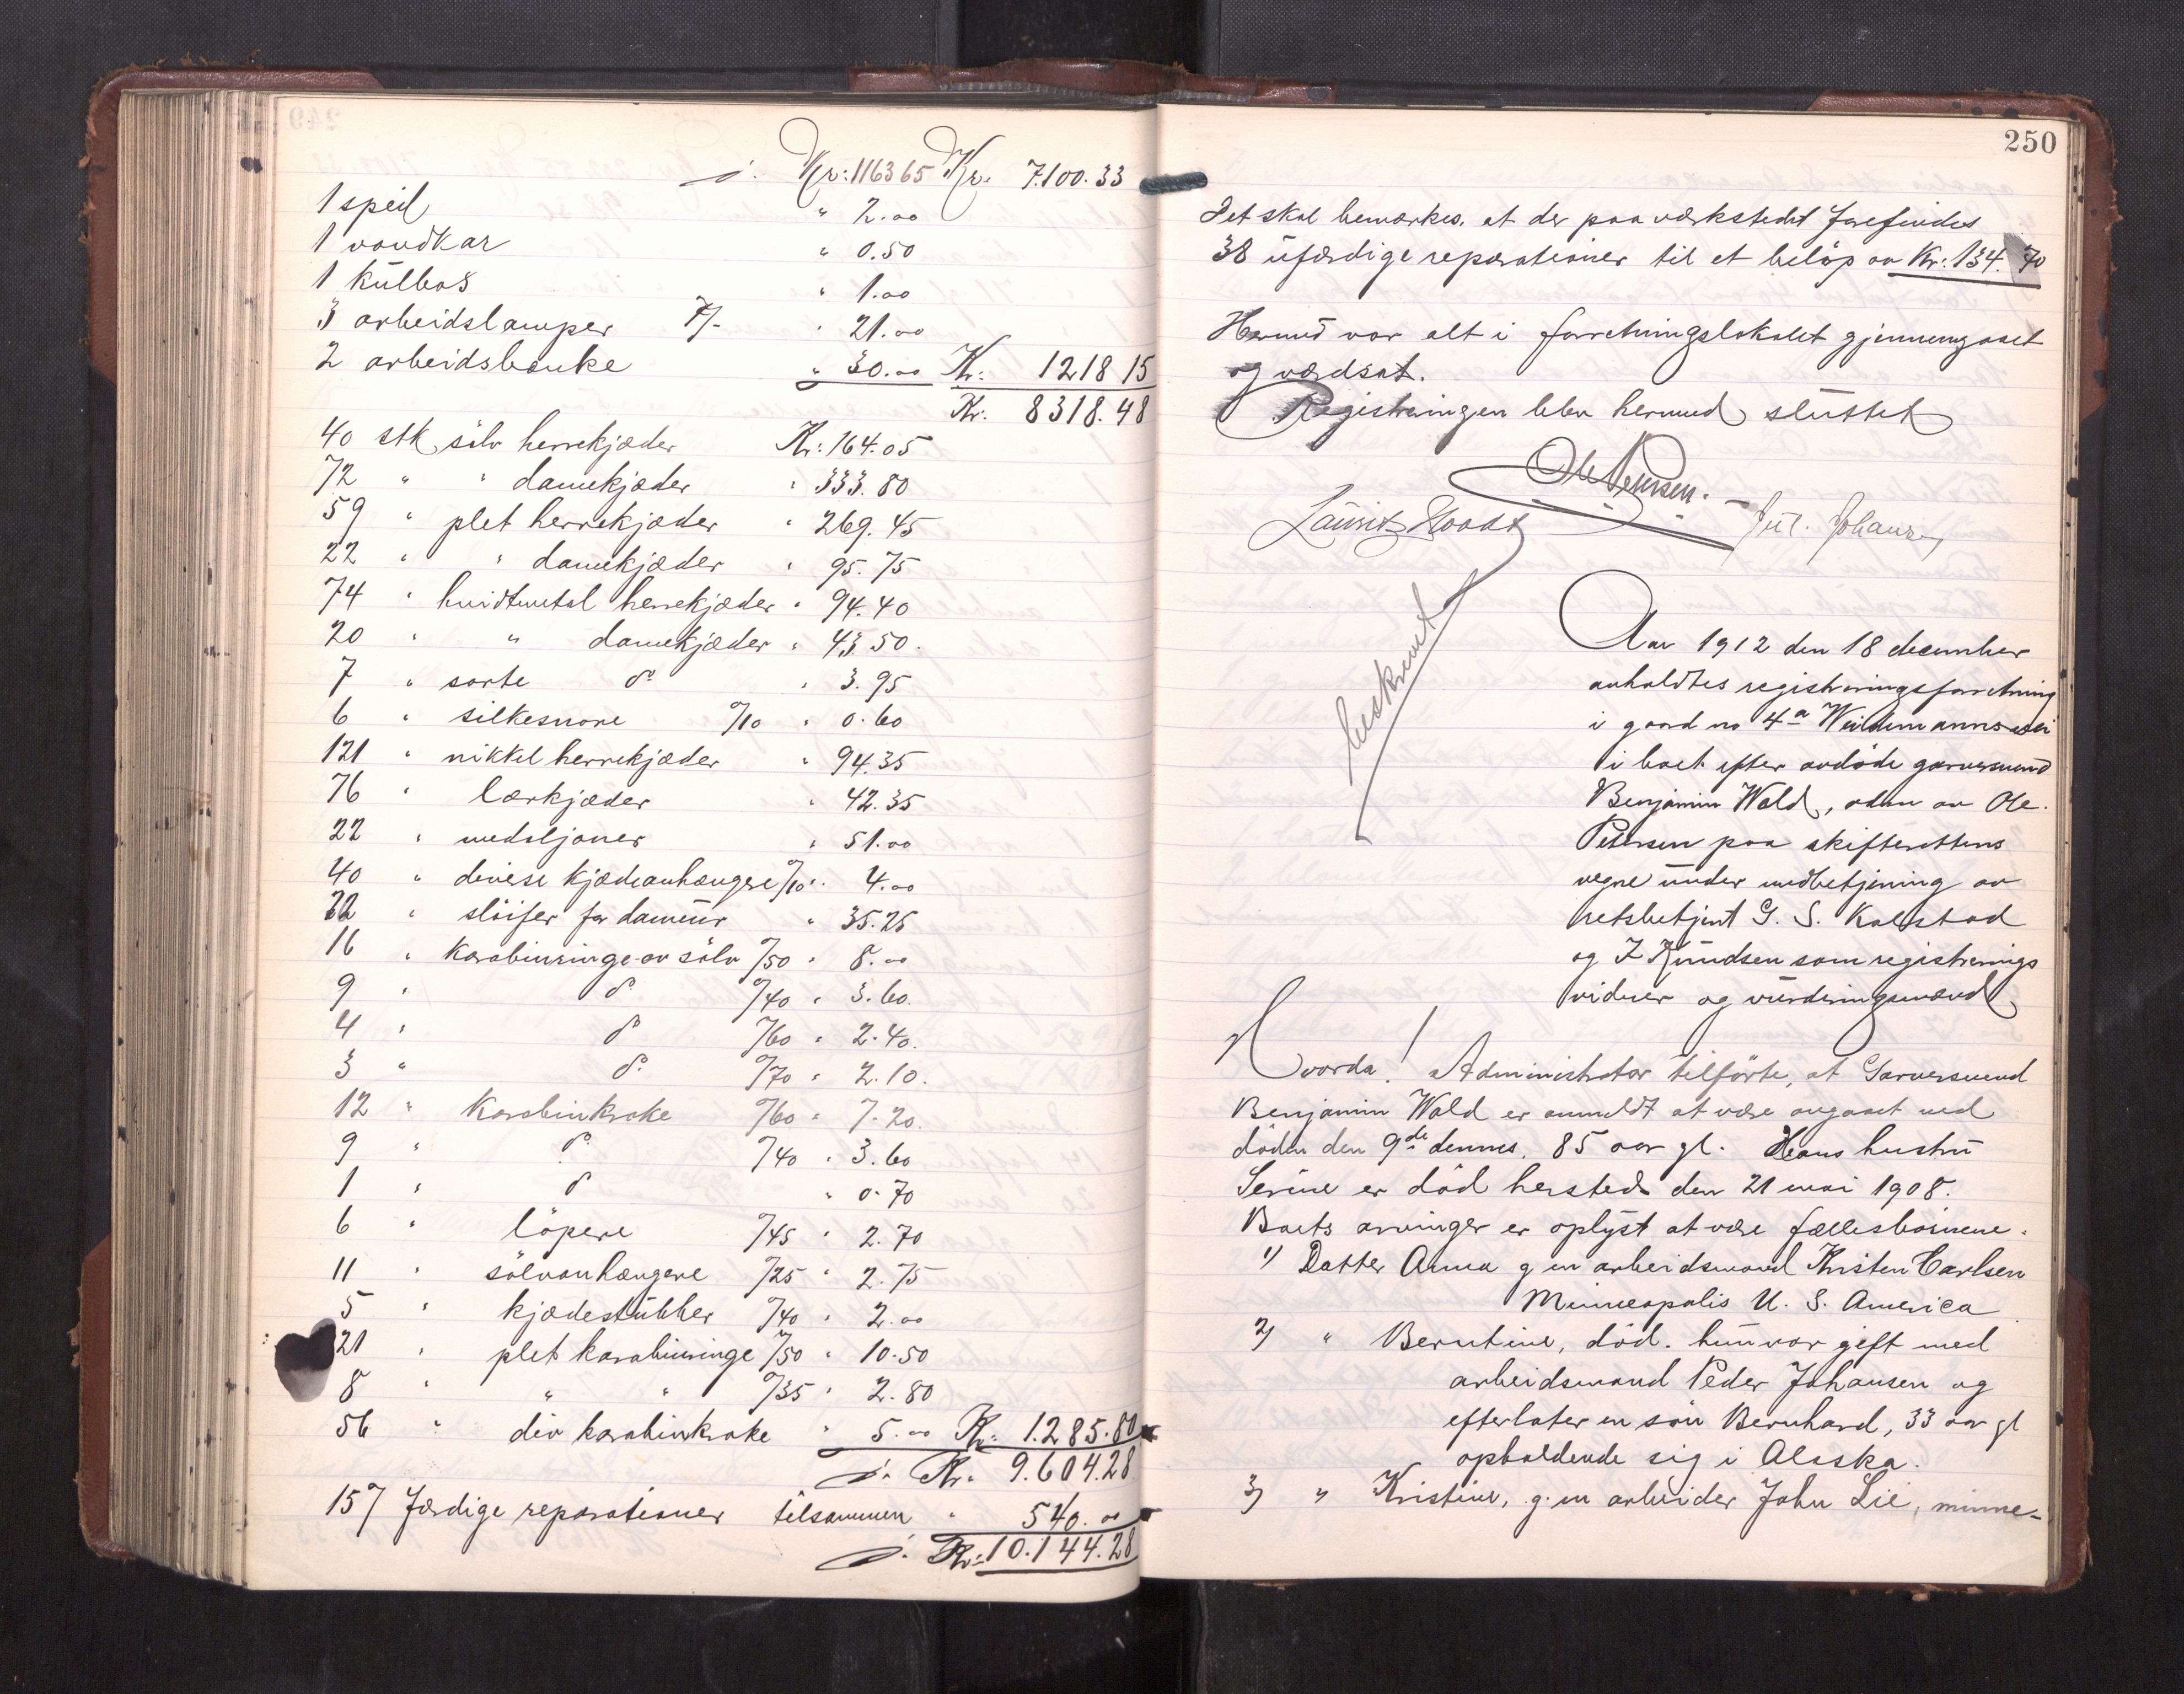 ÷ Kr: 1163 65 Kr. 7.100.33
1 speil " 2.00
1 vandkar " 0.50
1 külbox " 1.00
3 arbeidslamper 7/- " 21.00
2 arbeidsbænke " 30.00 Kr: 1218 15
Kr. 8318.48
40 stk sölv herrekjæder Kr: 164.05
72 " " damekjæder " 333.80
59 " plet herrekjæder " 269.45
22 " " damekjæder " 95.75
74 " hvidtmetal herrekjæder " 94.40
20 " " damekjæder " 43.50.
7 " sorte do " 3.95
6 " silkesnore %10 " 0.60
121 " nikkel herrekjæder " 94.35
76 " lærkjæder " 42.35
22 " medaljoner " 51.00
40 " diverse kjædeanhængere %10 " 4.00
22 " slöifer for dameür " 35.25
16 " Karabinringe av sölv %50 " 8.00
9 " do %40 " 3.60.
4 " do %60 " 2.40.
3 " do %70 " 2.10.
12 " Karabinkroke %60 " 7.20.
9 " do %40 " 3.60
1 " do " 0.70
6 " löpere %45 " 2.70
11 " sölvanhængere %25 " 2.75
5 " kjædestübber %40 " 2.00
21 " plet karabinringe %50 " 10.50
8 " " " %35 " 2.80
56 " div karabinkroke " 5.00 Kr. 1.285.80
÷ Kr. 9.604.28
157 færdige reparationer tilsammen " 540.00
÷ Kr: 10.144.28
250
Det skal bemærkes, at der paa værkstedet forefindes
38 üfærdige reparationer til et belöp av Kr: 134.70
Hermed var alt i forretningslokalet gjennemgaaet
og værdsat.
Registreringen blev hermed slüttet
Ole Petersen.
Jül. Johansen
beskrevet
Aar 1912 den 18 december
anholdtes registreringsforretning
i gaard no 4a Weidemannsvei
i boet efter avdöde garversvend
Benjamin Wald, aden av Ole
Petersen paa skifterettens
vegne ünder medbetjening av
retsbetjent G. S. Kalstad
og I Knüdsen som registrerings
vidner og vürderingsmænd
Hvorda! Administrator tilförte, at Garversvend
Benjamin Wald er anmeldt at være avgaaet ved
döden den 9de dennes, 85 aar gl. Hans hustrü
Serine er död hersteds den 21 mai 1908.
Boets arvinger er oplyst at være fællesbörnene.
1) Datter Anna g m arbeidsmand Kristen Carlsen
Minneapolis U. S. America
2) " Berntine, död. hün var gift med
arbeidsmand Peder Johansen og
efterlater en sön Bernhard, 33 aar gl
opholdende sig i Alaska.
3) " Kristine, g. m arbeider John Lie, minne-